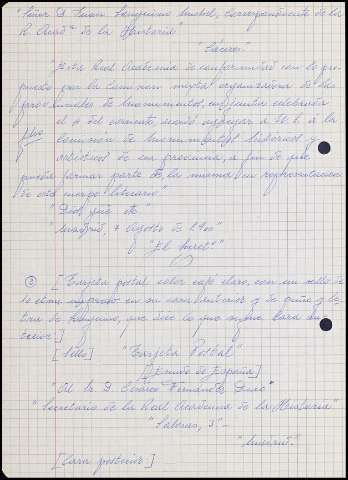 "Señor D. Juan Sanguino Michel, Correspondiente de la
R. Acad.ª de la Historia"
"Cáceres"
"Esta Real Academia de conformidad con lo pro-
puesto por la Comision mixta organizadora de las
provinciales de monumentos, en junta celebrada
el 4 del corriente, acordó agregar a V. S. á la
Comisión de monumentos históricos y
artísticos de esa provincia, a fin de que
pueda formar parte de la misma en representación
de este cuerpo literario"
"Dios gue etc"
"Madrid, 7 agosto de 1900"
"El Secret.º"
[Tarjeta postal color café claro, con un sello de
en su cara anterior y de puño y le-
tra de Sanguino, que dice lo que sigue. Cara an-
terior.]
[Sello] "Tarjeta Postal"
[Escudo de España]
"Al Sr. D. Cesáreo Fernández Duro"
"Secretario de la Real Academia de la Historia"
[Cara posterior.]